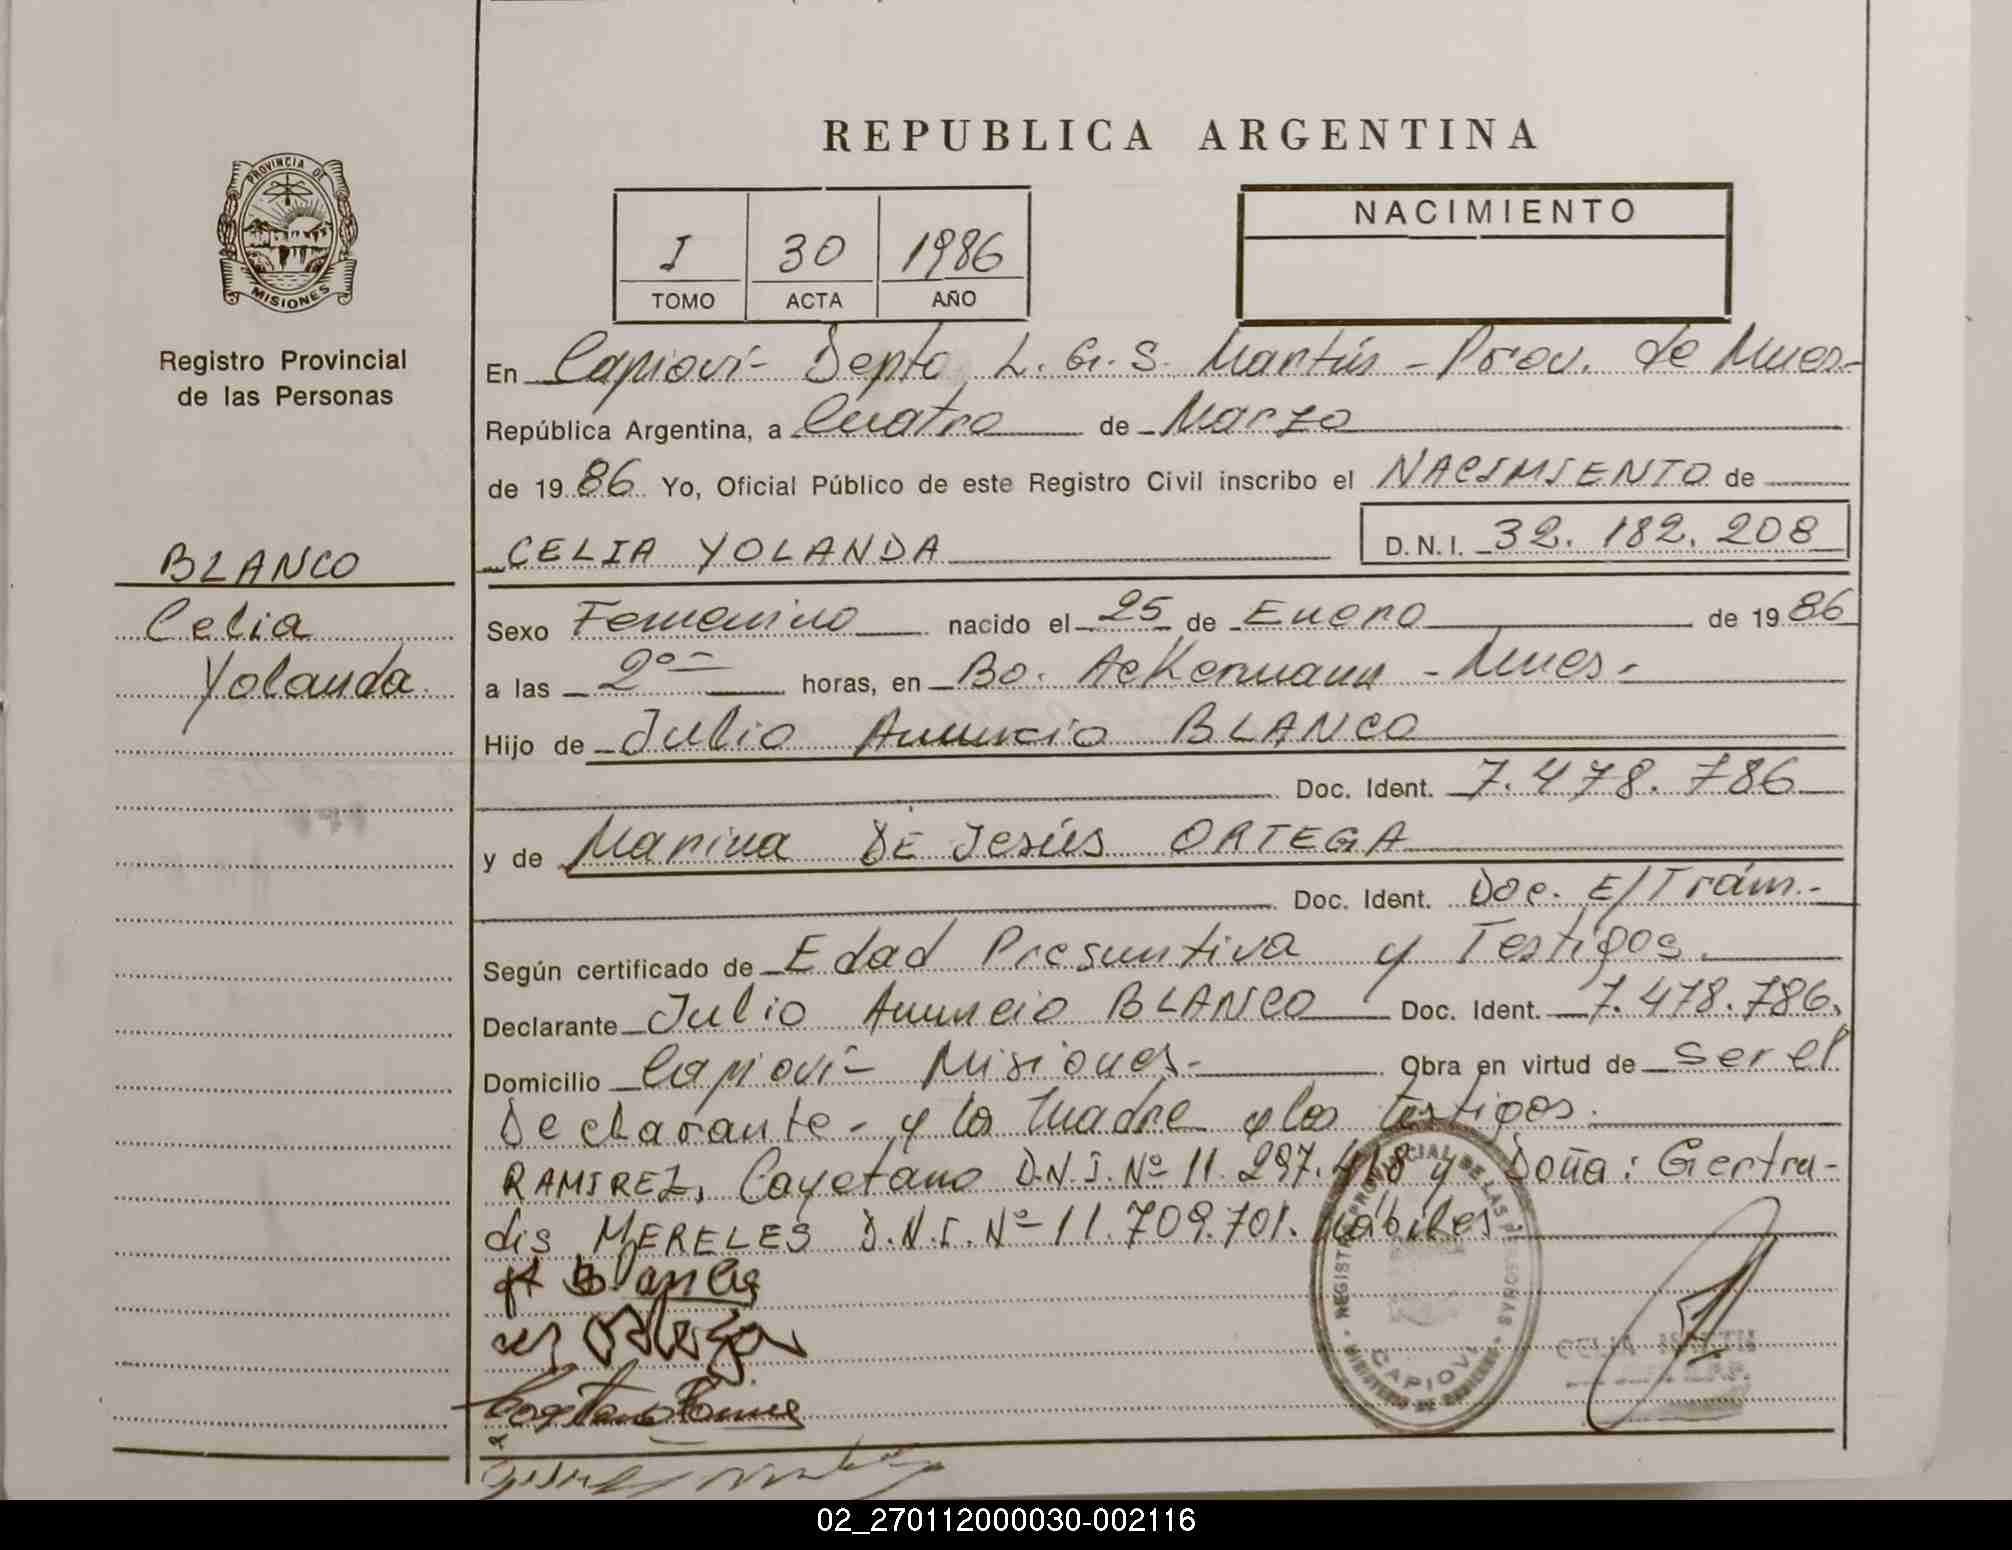 REPUBLICA ARGENTINA
PROVINCIA DE MISIONES
Registro Provincial
de las Personas
I 30 1986
TOMO ACTA AÑO
NACIMIENTO
En Capioví- Depto L. G. S. Martín - Prov. de Mnes.-
República Argentina, a Cuatro de Marzo
de 1986 Yo, Oficial Público de este Registro Civil inscribo el NACIMIENTO de
CELIA YOLANDA D.N.I. 32.182.208
BLANCO
Celia
Yolanda.
Sexo Femenino nacido el 25 de Enero de 1986
a las 2°°- horas, en Bo. Ackermann - Mnes.-
Hijo de Julio Anuncio BLANCO
Doc. Ident. 7.478.786
y de Marina DE Jesús ORTEGA
Doc. Ident. Doc. E/Trám.-
Según certificado de Edad Presuntiva y Testigos.
Declarante Julio Anuncio BLANCO Doc. Ident. 7.478.786.
Domicilio Capioví- Misiones.- Obra en virtud de Ser el
Declarante - y la Madre y los testigos.
RAMIREZ, Cayetano D.N.I. Nº 11.297.418 y Doña: Gertru-
dis MERELES D.N.I. Nº 11.709.701. hábiles
REGISTRO PROVINCIAL DE LAS PERSONAS
CAPIOVI
MINISTERIO DE GOBIERNO
02_270112000030-002116